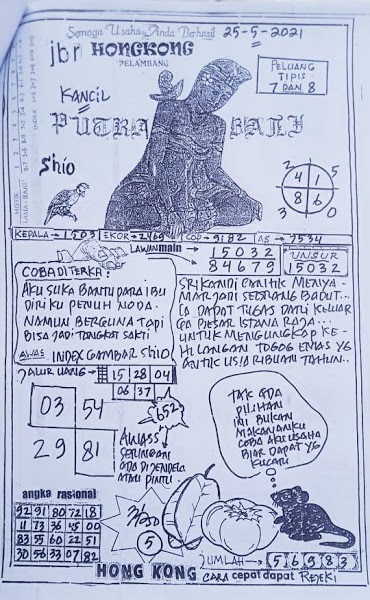 Semoga Usaha Anda Berhasil 25-5-2021
jbr HONGKONG
PELAMBANG
PELUANG
TIPIS
7 DAN 8
KANCIL
PUTRA BALI
Shio
2 5
4 1
8 6
3 0
KEPALA → 1503 EKOR → 2469 COP → 9182 AS → 7534
LAWAN main 15032
84679
UNSUR
15032
COBA DI TERKA :
AKU SUKA BANTU PARA IBU
DIRIKU PENUH NODA.
NAMUN BERGUNA TAPI
BISA JADI TONGKAT SAKTI
AWAS INDEX GAMBAR Shio
SRIKANDI CANTIK MENYA-
MAR JADI SEORANG BADUT..
IA DAPAT TUGAS DARI KELUAR
GA BESAR ISTANA RAJA...
UNTUK MENGUNGKAP KE-
HILANGAN TOGOG EMAS YG
ANTIK USIA RIBUAN TAHUN..
JALUR UANG → 15 28 04
06 37
652
03 54
29 81
AWASS
SERINGAN
ADA DI JENDELA
ATAU PINTU
TAK ADA
PILIHAN
INI BUKAN
MAKANANKU
COBA AKU USAHA
BIAR DAPAT YG
KUCARI
angka rasional
92 91 80 72 18
11 73 36 45 00
83 55 60 22 51
30 56 33 07 82
5
JUMLAH → 5 6 9 8 3
HONG KONG CARA cepat dapat REJEKI